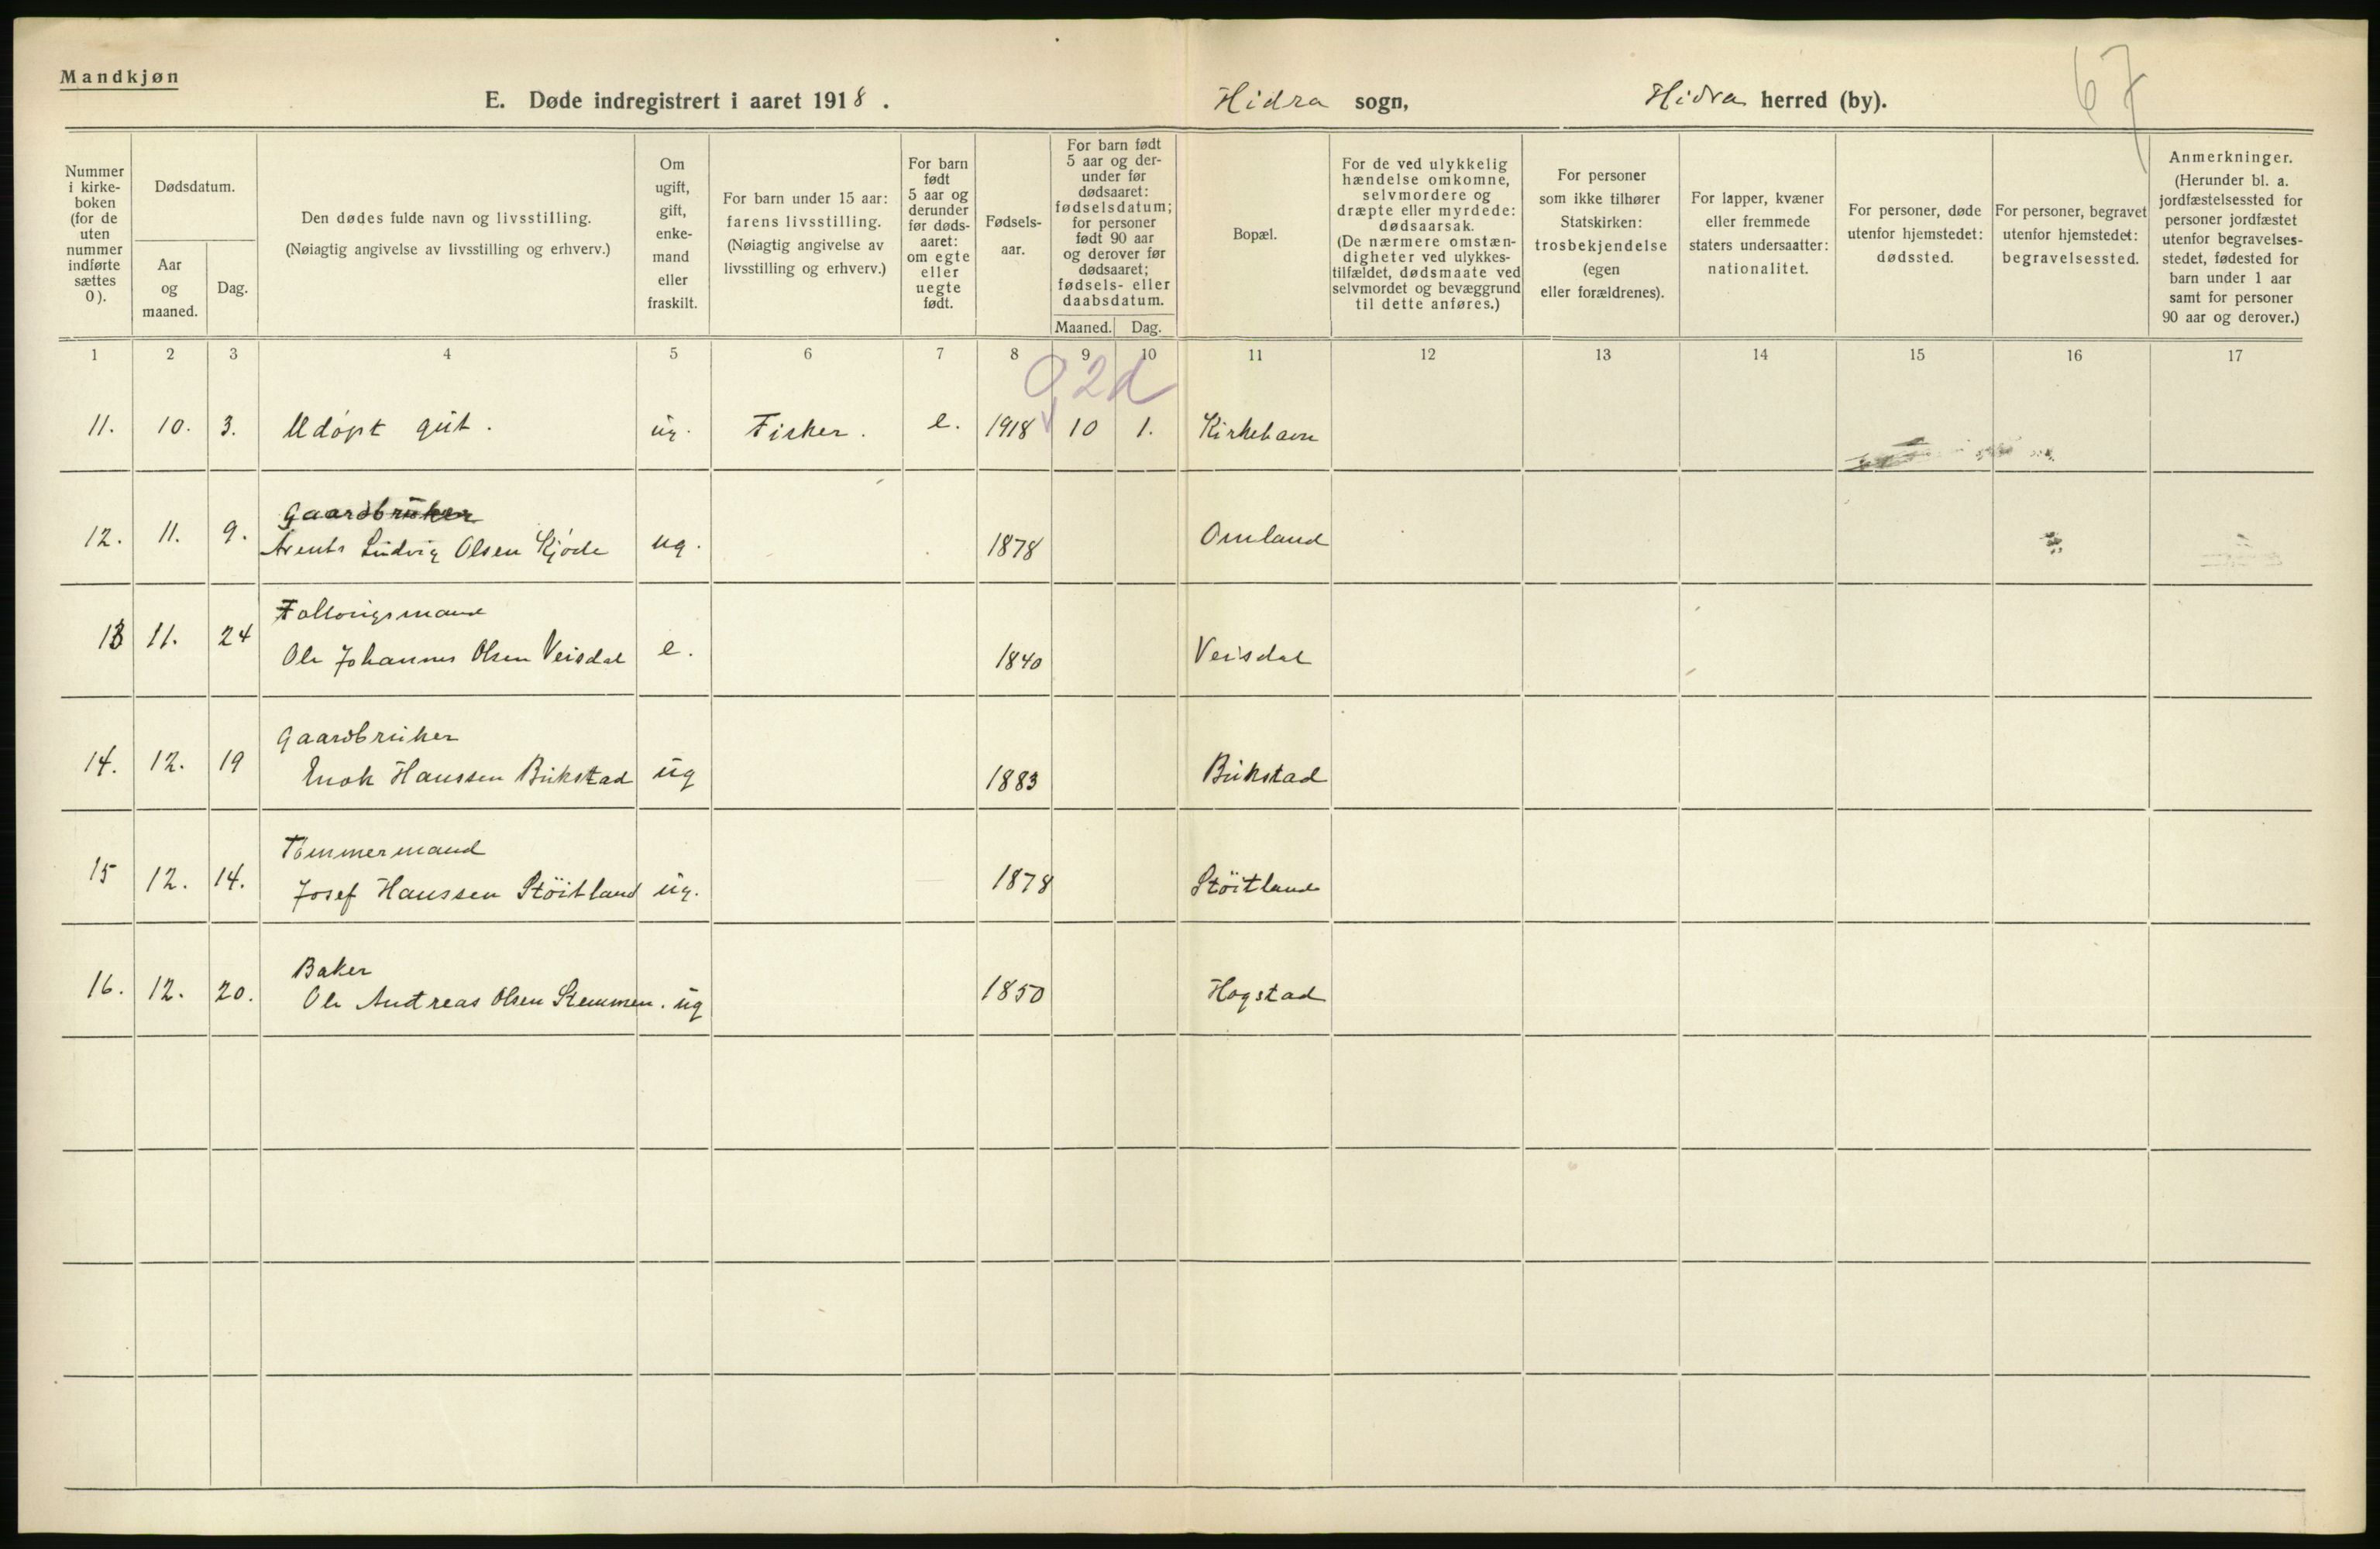 Mandkjøn
E. Døde indregistrert i aaret 1918. Hidra sogn, Hidra herred (by). 67
Nummer i kirkeboken (for de uten nummer indførte sættes 0).
Dødsdatum.
Aar og maaned.
Dag.
Den dødes fulde navn og livsstilling.
(Nøiagtig angivelse av livsstilling og erhverv.)
Om ugift, gift, enkemand eller fraskilt.
For barn under 15 aar: farens livsstilling. (Nøiagtig angivelse av livsstilling og erhverv.)
For barn født 5 aar og derunder før dødsaaret: om egte eller uegte født.
Fødselsaar.
For barn født 5 aar og derunder før dødsaaret: fødselsdatum; for personer født 90 aar og derover før dødsaaret; fødsels- eller daabsdatum.
Maaned. Dag.
Bopæl.
For de ved ulykkelig hændelse omkomne, selvmordere og dræpte eller myrdede: dødsaarsak. (De nærmere omstændigheter ved ulykkestilfældet, dødsmaate ved selvmordet og bevæggrund til dette anføres.)
For personer som ikke tilhører Statskirken: trosbekjendelse (egen eller forældrenes).
For lapper, kvæner eller fremmede staters undersaatter: nationalitet.
For personer, døde utenfor hjemstedet: dødssted.
For personer, begravet utenfor hjemstedet: begravelsessted.
Anmerkninger. (Herunder bl. a. jordfæstelsessted for personer jordfæstet utenfor begravelsesstedet, fødested for barn under 1 aar samt for personer 90 aar og derover.)
1 2 3 4 5 6 7 8 9 10 11 12 13 14 15 16 17
2d
11. 10. 3. Udøpt gut. ug. Fisker. e. 1918 10 1. Kirkehavn
Gaardbruker
12. 11. 9. Arents Ludvig Olsen Kjøde ug. 1878 Omland
13 11. 24 Ole Johannes Olsen Veisdal e. 1840 Veisdal
Gaardbruker
14. 12. 19 Enok Hanssen Bukstad ug 1883 Bukstad
Tømmermand
15 12. 14. Josef Hanssen Støitland ug. 1878 Støitland
Baker
16. 12. 20. Ole Andreas Olsen Stemmen. ug 1850 Hogstad